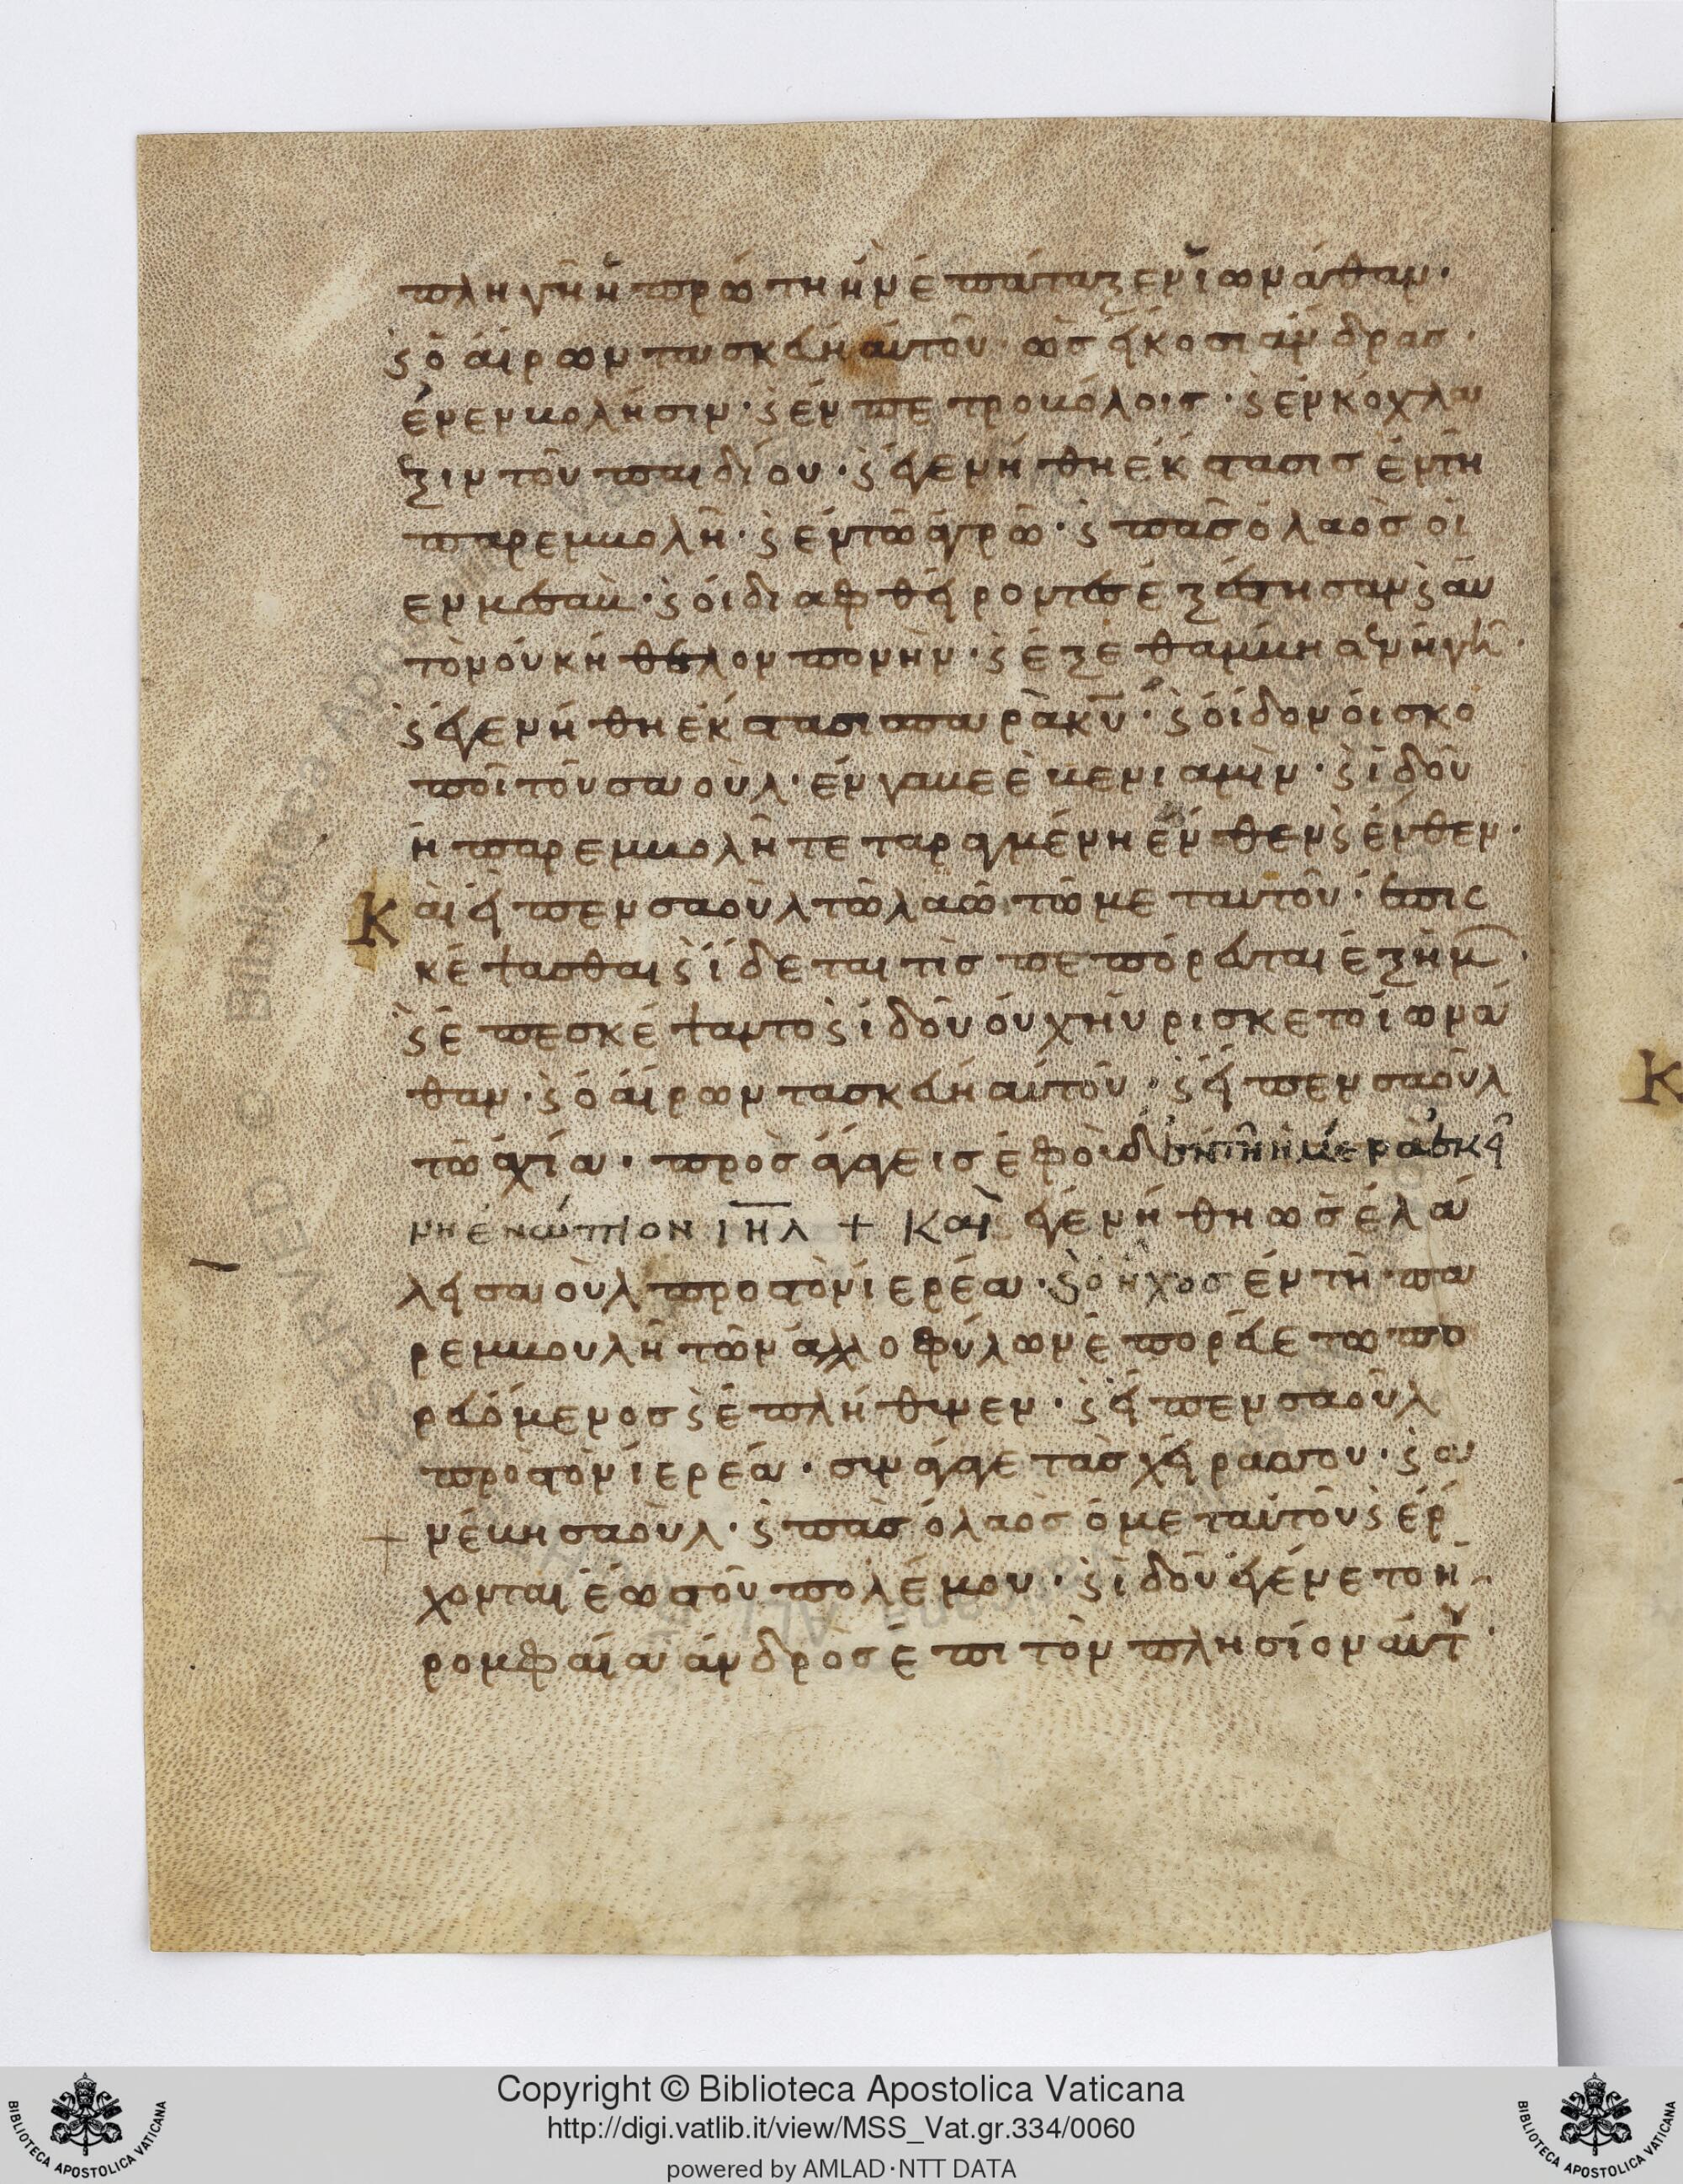 πληγὴ ἡ πρώτη ἣν ἐπάταξεν ἰωνάθαν·
ϛ ὁ αἴρων τα σκεύη αὐτοῦ· ὡς εἴκοσι ἄνδρας·
ἐν ἐν βολήσιν· ϛ ἐν πετροβόλοις· ϛ ἐν κόχλα
ξιν τοῦ παιδίου· ϛ ἐγενήθη ἔκστασις ἐν τῆ
παρεμβολῆ· ϛ ἐν τῶ ἀγρῶ· ϛ πᾶς ὁ λαὸς οἱ
ἐν μεσαὺ· ϛ οἱ διαφθείροντες ἐξέστησαν ϛ αὐ
τοὶ οὐκ ἤθελον πονεῖν· ϛ ἐξέθαμβη σεν ἡ γῆ·
ϛ ἐγενήθη ἔκστασις παρὰ κυ· ϛ οἶδον οἱ σκο
ποὶ τοῦ σαοὺλ· ἐν γαβεὲ βενιαμὶν· ϛ ἰδοῦ
ἡ παρεμβολὴ τεταραγμένη ἔνθεν ϛ ἔνθεν·
Καὶ εἶπεν σαοὺλ τῶ λαῶ τῶ μετ αυτοῦ· ἐπισ
κέψασθαι ϛ ἴδεται τὶς πεπόρευται ἐξ ἡμῶν·
ϛ ἐπεσκέψαντο ϛ ἰδοῦ οὐχ ηὑρίσκετο ἰωνά
θαν· ϛ ὁ αἴρων τα σκεύη αὐτοῦ· ϛ εἶπεν σαοὺλ
τῶ ἀχία· προσάγγεις ἐφοὺδ ἐν τῆ ἡμέρα ἐκεί
νη ἐνώπιον ιηλ + Καὶ ἐγενήθη ὡς ἐλά
λει σαοὺλ προς τὸν ἱερέα· ϛ ὁ ἦχος ἐν τῆ πα
ρεμβουλῆ τῶν ἀλλοφύλων ἐπορεύετω πο
ρευόμενος ϛ ἐπλήθυνεν· ϛ εἶπεν σαοὺλ
πρὸς τὸν ἱερέα· συνάγαγε τὰς χεῖρας σου· ϛ α
νέβη σαοὺλ· ϛ πᾶς ὁ λαὸς ὁ μετ αὐτοῦ ϛ ἔρ
χονται ἕως τοῦ πολέμου· ϛ ἰδοῦ ἐγένετο ἡ
ρομφαία ἀνδρὸς ἐπι τὸν πλησίον αὐτοῦ·
Copyright © Biblioteca Apostolica Vaticana
http://digi.vatlib.it/view/MSS_Vat.gr.334/0060
powered by AMLAD·NTT DATA